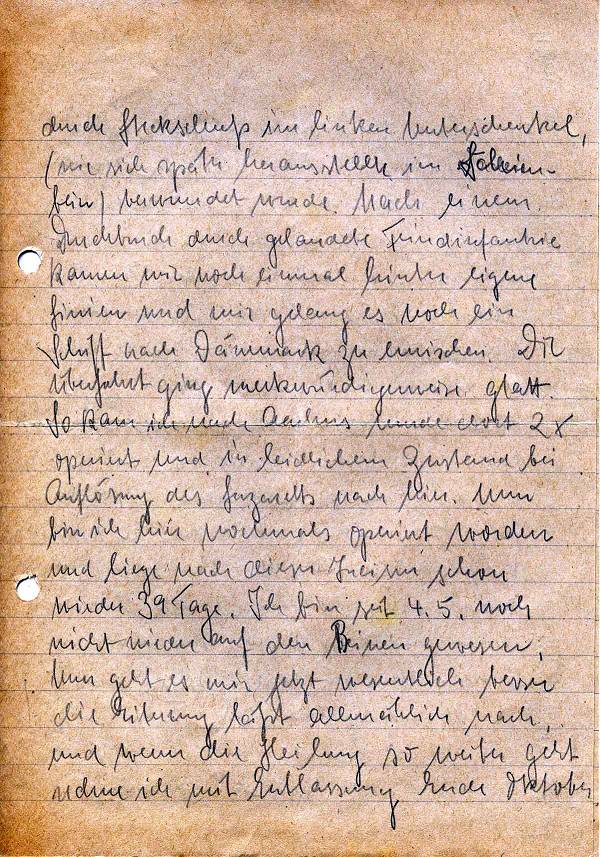 durch Steckschuß im linken Unterschenkel,
(wie sich später herausstellte im Schien-
bein) verwundet wurde. Nach einem
Durchbruch durch gelandete Feindinfantrie
kamen wir noch einmal hinter eigene
Linien und mir gelang es noch ein
Schiff nach Dänmark zu erwischen. Die
Überfahrt ging merkwürdigerweise glatt.
So kam ich nach Aarhus wurde dort 2x
operiert und in leidlichem Zustand bei
Auflösung des Lazaretts nach hier. Nun
bin ich hier nochmals operiert worden
und liege nach dieser schon
wieder 39 Tage. Ich bin seit 4.5. noch
nicht wieder auf den Beinen gewesen,
Nun geht es mir jetzt wesentlich besser
die Eiterung läßt allmählich nach,
und wenn die Heilung so weiter geht
rechne ich mit Entlassung Ende Oktober